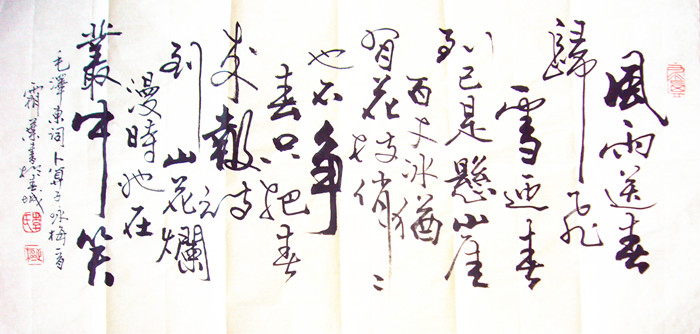 風雨送春
歸飛
雪迎春
到已是懸崖
百丈冰猶
有花枝俏〻
也不争
春只把春
來報待
到山花爛
漫時她在
叢中笑
毛澤東詞卜算子咏梅一首
霜葉書於春城